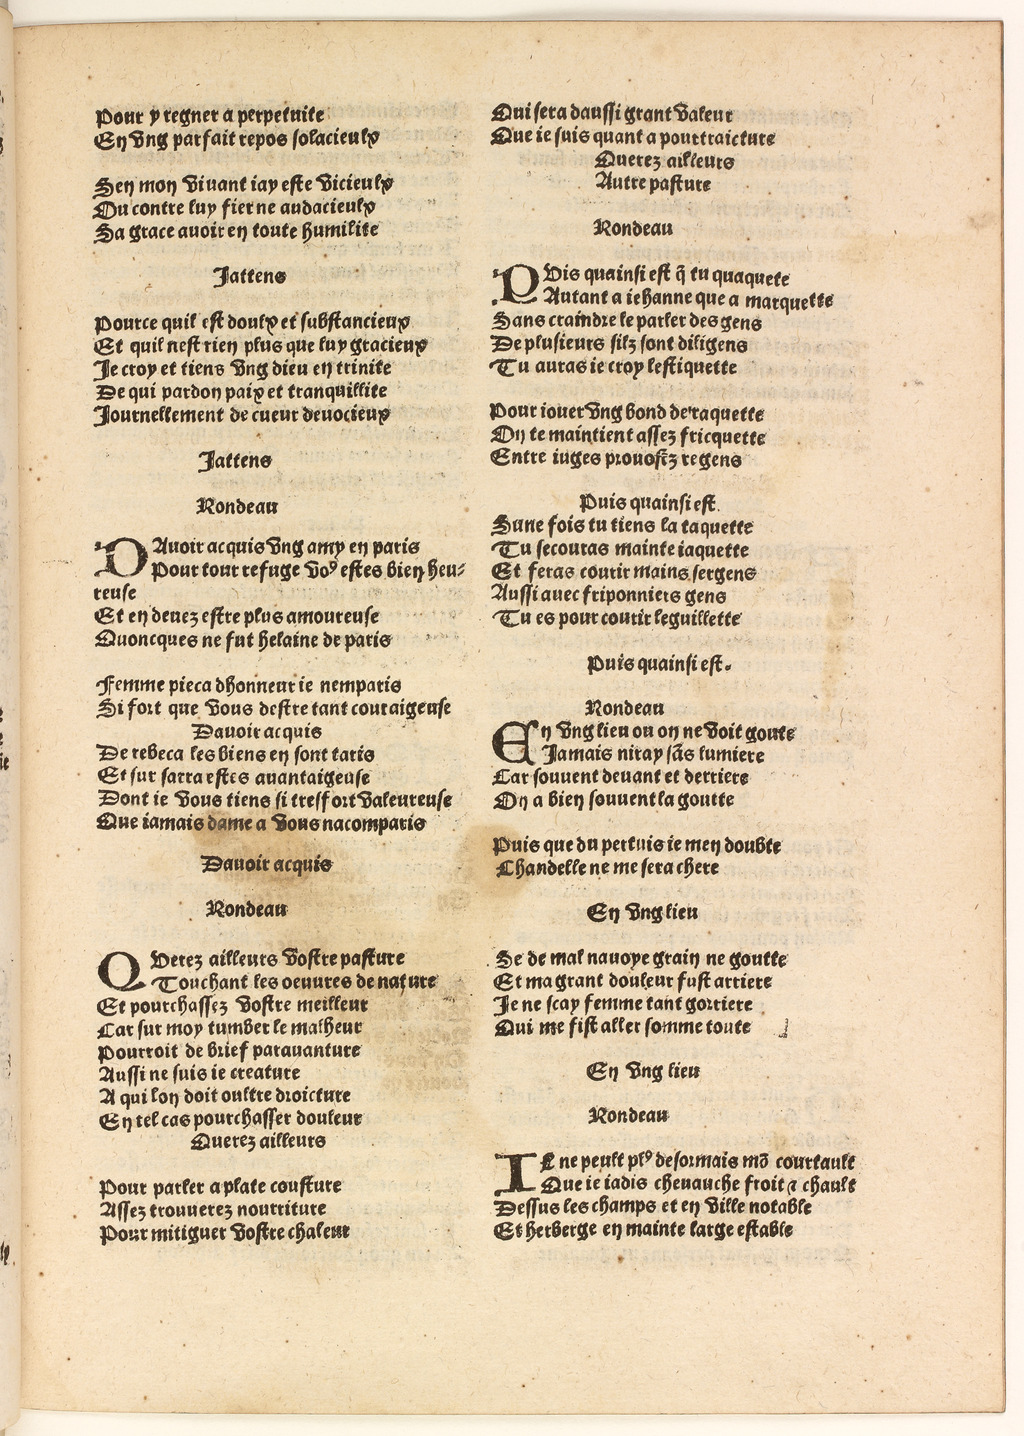 Pour y regner a perpetuite
En vng parfait repos solacieulx
Sen mon viuant iay este vicieulx
Ou contre luy fier ne audacieulx
Sa grace auoir en toute humilite
Jattens
Pource quil est doulx et substancieux
Et quil nest rien plus que luy gracieux
Je croy et tiens vng dieu en trinite
De qui pardon paix et tranquillite
Journellement de cueur deuocieux
Jattens
Rondeau
DAuoir acquis vng amy en paris
Pour tout refuge voꝰ estes bien heu-
reuse
Et en deuez estre plus amoureuse
Quoncques ne fut helaine de paris
Femme pieca dhonneur ie nemparis
Si fort que vous destre tant couraigeuse
Dauoir acquis
De rebeca les biens en sont taris
Et sur sarra estes auantaigeuse
Dont ie vous tiens si tresfort valeureuse
Que iamais dame a vous nacomparis
Dauoir acquis
Rondeau
QVerez ailleurs vostre pasture
Touchant les oeuures de nature
Et pourchassez vostre meilleur
Car sur moy tumber le malheur
Pourroit de brief parauanture
Aussi ne suis ie creature
A qui lon doit oultre droicture
En tel cas pourchasser douleur
Querez ailleurs
Pour parler a plate cousture
Assez trouuerez nourriture
Pour mitiguer vostre chaleur
Qui sera daussi grant valeur
Que ie suis quant a pourtraicture
Querez ailleurs
Autre pasture
Rondeau
PVis quainsi est q̃ tu quaquete
Autant a iehanne que a marquette
Sans craindre le parler des gens
De plusieurs silz sont diligens
Tu auras ie croy lestiquette
Pour iouer vng bond de raquette
On te maintient assez fricquette
Entre iuges prouostz regens
Puis quainsi est.
Sune fois tu tiens la taquette
Tu secouras mainte iaquette
Et feras courir mains sergens
Aussi auec friponniers gens
Tu es pour courir leguillette
Puis quainsi est.
Rondeau
En vng lieu ou on ne voit goute
Jamais niray sãs lumiere
Car souuent deuant et derriere
On a bien souuent la goutte
Puis que du pertuis ie men doubte
Chandelle ne me sera chere
En vng lieu
Se de mal nauoye grain ne goutte
Et ma grant douleur fust arriere
Je ne scay femme tant gorriere
Qui me fist aller somme toute
En vng lieu
Rondeau
IL ne peult plꝰ desormais mõ courtault
Que ie iadis cheuauche froit ⁊ chault
Dessus les champs et en ville notable
Et herberge en mainte large estable